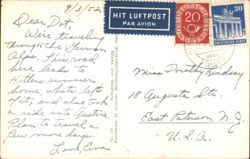 9/3/52
Dear Dot,
We're traveling
through the German
Alps. This road
here leads to
Hitler's summer
home what's left
of it, and also took
a ride into Austria.
Plan to travel a
few more days.
Love,
MIT LUFTPOST
PAR AVION
20
30
DEUTSCHE POST
Miss Dorothy Lindsay
18 Augusta St.
East Paterson, N.J.
U.S.A.